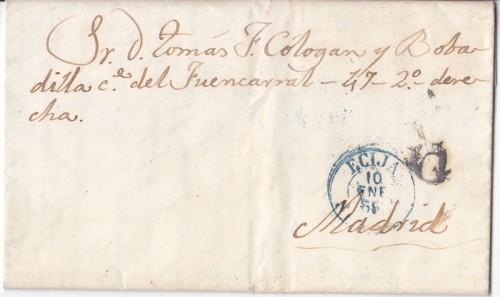 Sr. D. Tomás F. Cologan y Boba
dilla c.e del Fuencarral - 47 - 2º dere
cha.
ECIJA
10
ENE
Madrid